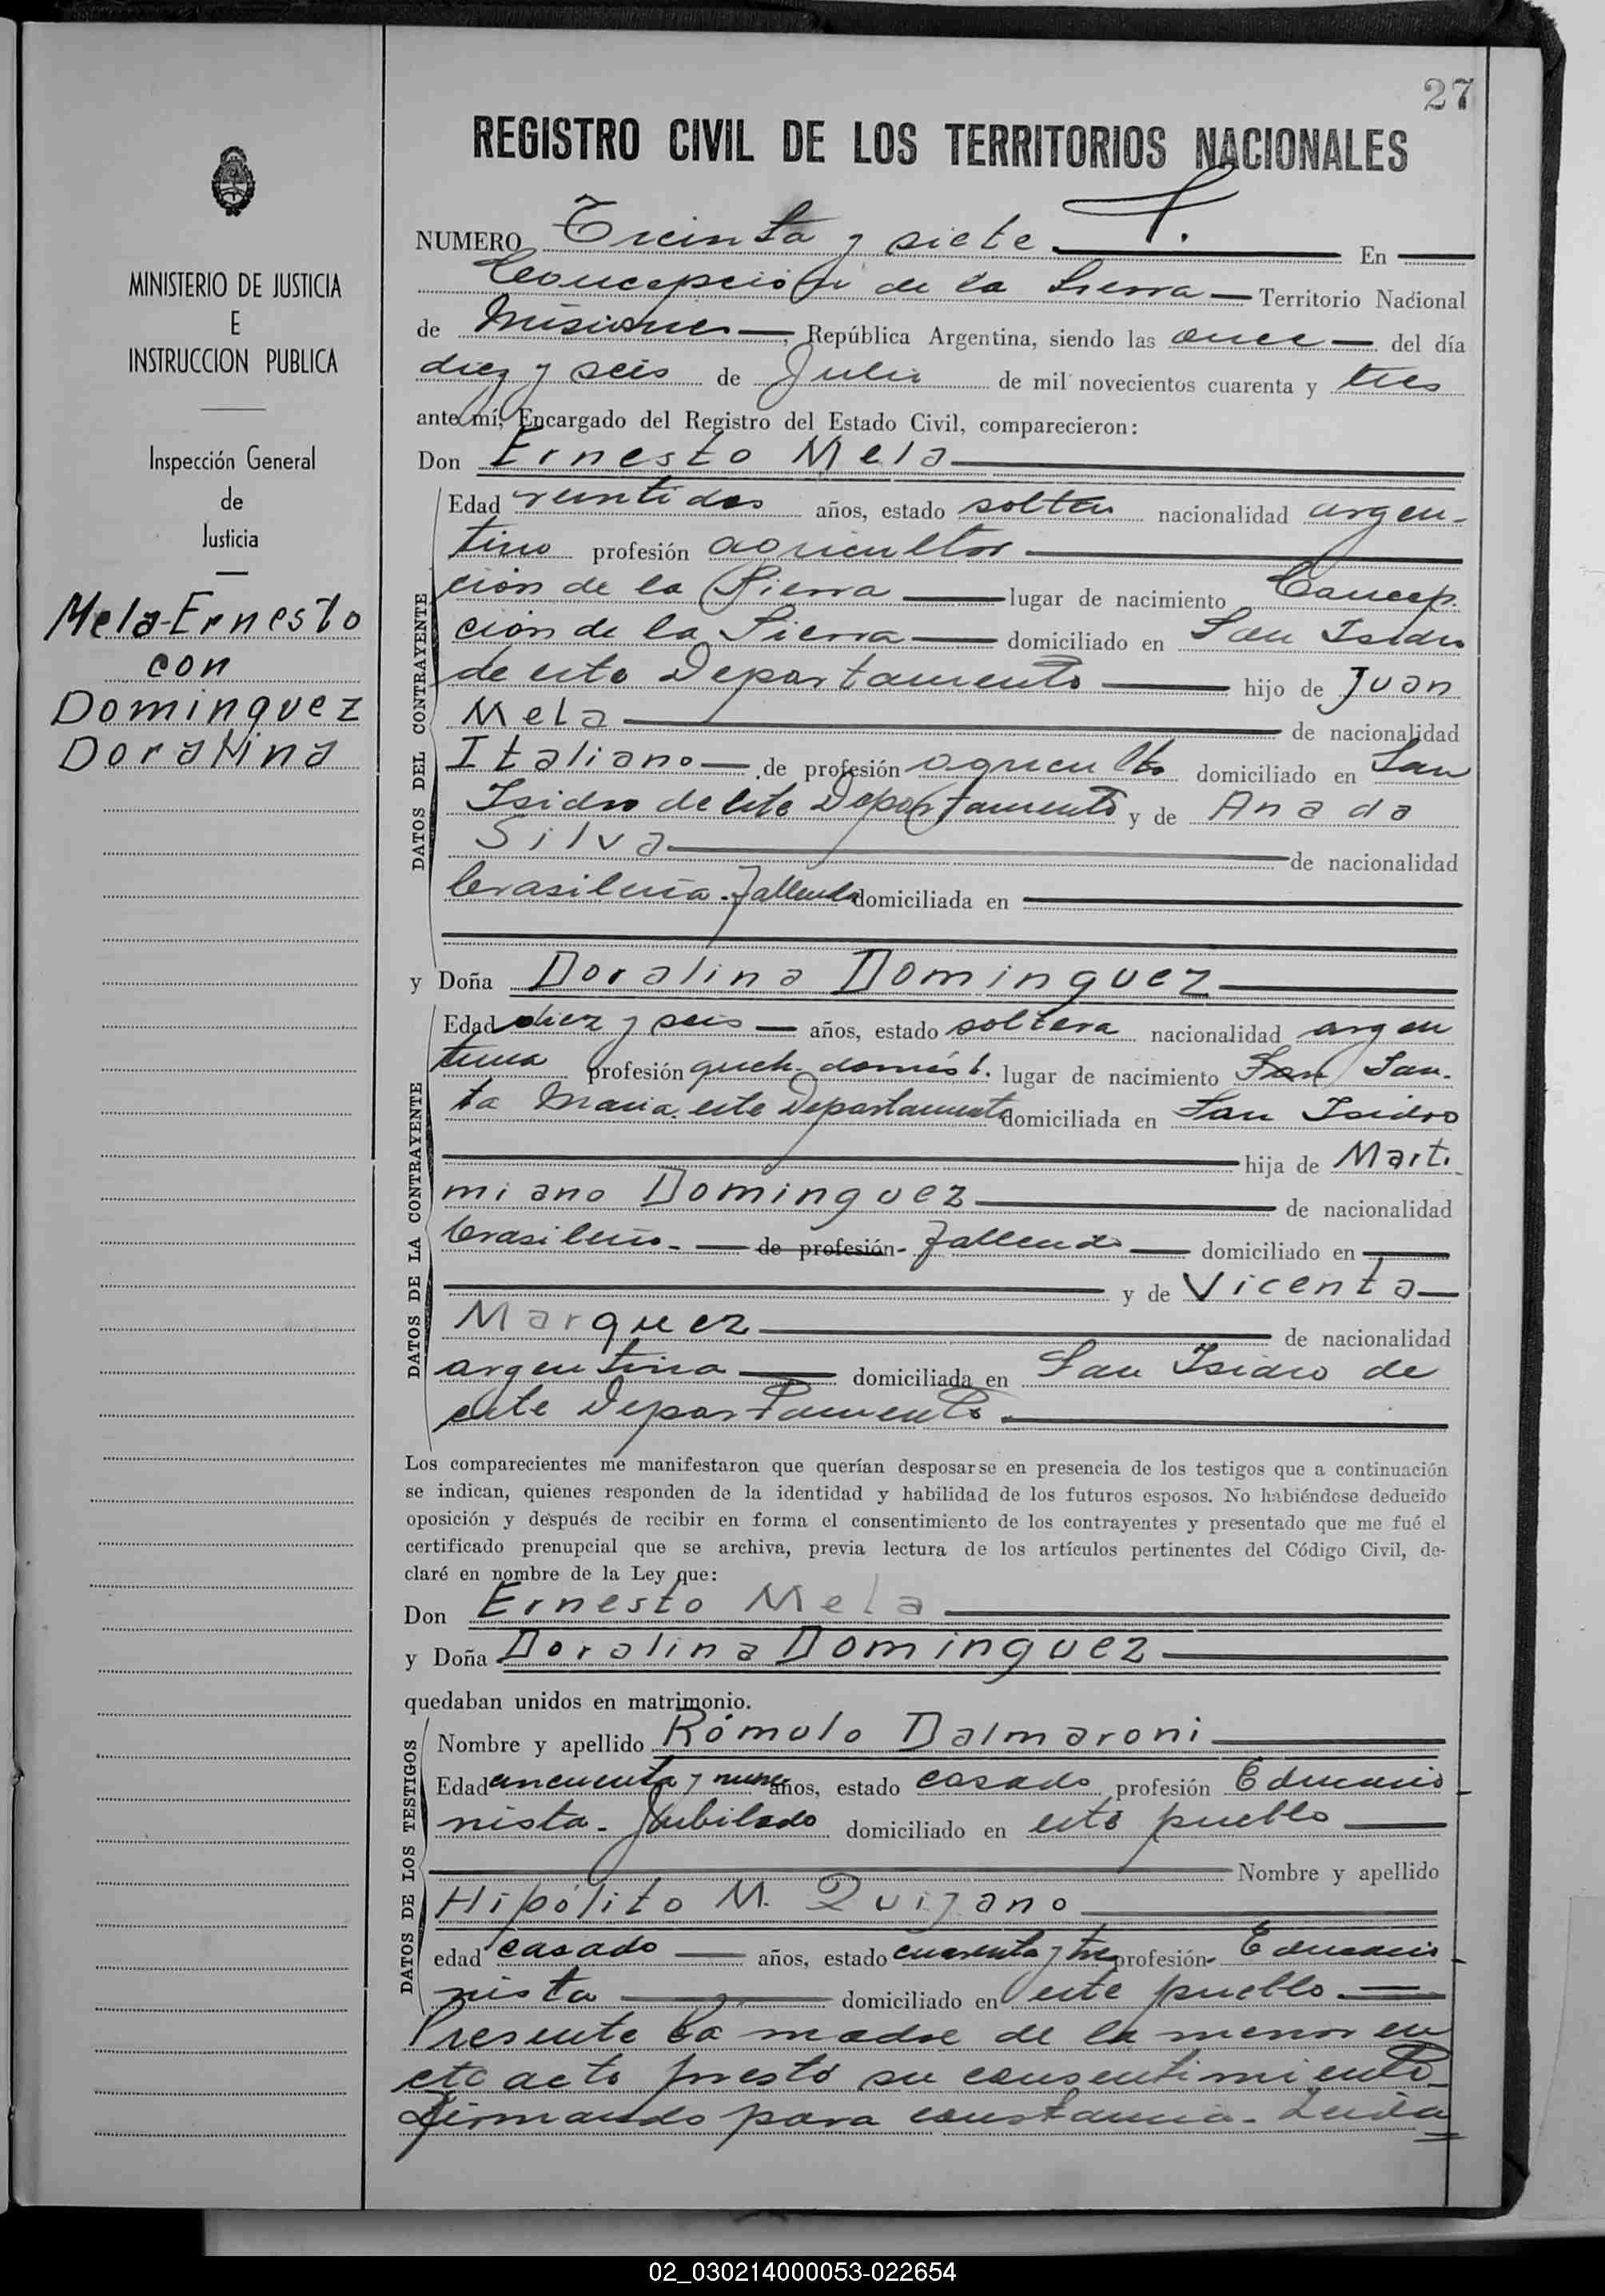 27
REGISTRO CIVIL DE LOS TERRITORIOS NACIONALES
MINISTERIO DE JUSTICIA
E
INSTRUCCION PUBLICA
Inspección General
de
Justicia
Mela-Ernesto
con
Dominguez
Doralina
NUMERO Treinta y siete. En
Concepción de la Sierra Territorio Nacional
de Misiones República Argentina, siendo las once del día
diez y seis de Julio de mil novecientos cuarenta y tres
ante mí, Encargado del Registro del Estado Civil, comparecieron:
Don Ernesto Mela
DATOS DEL CONTRAYENTE
Edad veintidos años, estado soltero nacionalidad argen-
tino profesión agricultor
ción de la Sierra lugar de nacimiento Concep.
ción de la Sierra domiciliado en San Isidro
de este Departamento hijo de Juan
Mela de nacionalidad
Italiano de profesión agricultor domiciliado en San
Isidro de este Departamento y de Ana da
Silva de nacionalidad
brasileña. fallecida domiciliada en
y Doña Doralina Dominguez
DATOS DE LA CONTRAYENTE
Edad diez y seis años, estado soltera nacionalidad argen
tina profesión queh. domést. lugar de nacimiento San San-
ta Maria este Departamento domiciliada en San Isidro
hija de Marti
miano Dominguez de nacionalidad
brasileño. de profesión- fallecido domiciliado en
y de Vicenta
Marquez de nacionalidad
argentina domiciliada en San Isidro de
este Departamento.
Los comparecientes me manifestaron que querían desposarse en presencia de los testigos que a continuación
se indican, quienes responden de la identidad y habilidad de los futuros esposos. No habiéndose deducido
oposición y después de recibir en forma el consentimiento de los contrayentes y presentado que me fué el
certificado prenupcial que se archiva, previa lectura de los artículos pertinentes del Código Civil, de-
claré en nombre de la Ley que:
Don Ernesto Mela
y Doña Doralina Dominguez
quedaban unidos en matrimonio.
DATOS DE LOS TESTIGOS
Nombre y apellido Rómulo Dalmaroni
Edad cincuenta y nueve años, estado casado profesión Educacio
nista. Jubilado domiciliado en este pueblo
Nombre y apellido
Hipólito M. Quijano
edad casado años, estado cuarenta y tres profesión Educacio
nista domiciliado en este pueblo.
Presente la madre de la menor en
este acto prestó su consentimiento
firmando para constancia. Leida
02_030214000053-022654